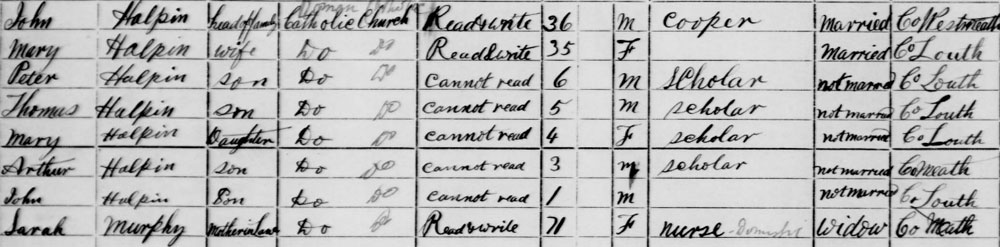 John Halpin head of family Roman Catholic Church Read & write 36 M Cooper Married Co Westmeath
Mary Halpin wife Do Do Read & write 35 F Married Co Louth
Peter Halpin son Do Do cannot read 6 m scholar not married Co Louth
Thomas Halpin son Do Do cannot read 5 m scholar not married Co Louth
Mary Halpin Daughter Do Do cannot read 4 F scholar not married Co Louth
Arthur Halpin son Do Do cannot read 3 m scholar not married Co Meath
John Halpin Son Do Do cannot read 1 m not married Co Louth
Sarah Murphy Mother in Law Do Do Read & write 71 F nurse - Domestic Widow Co Meath